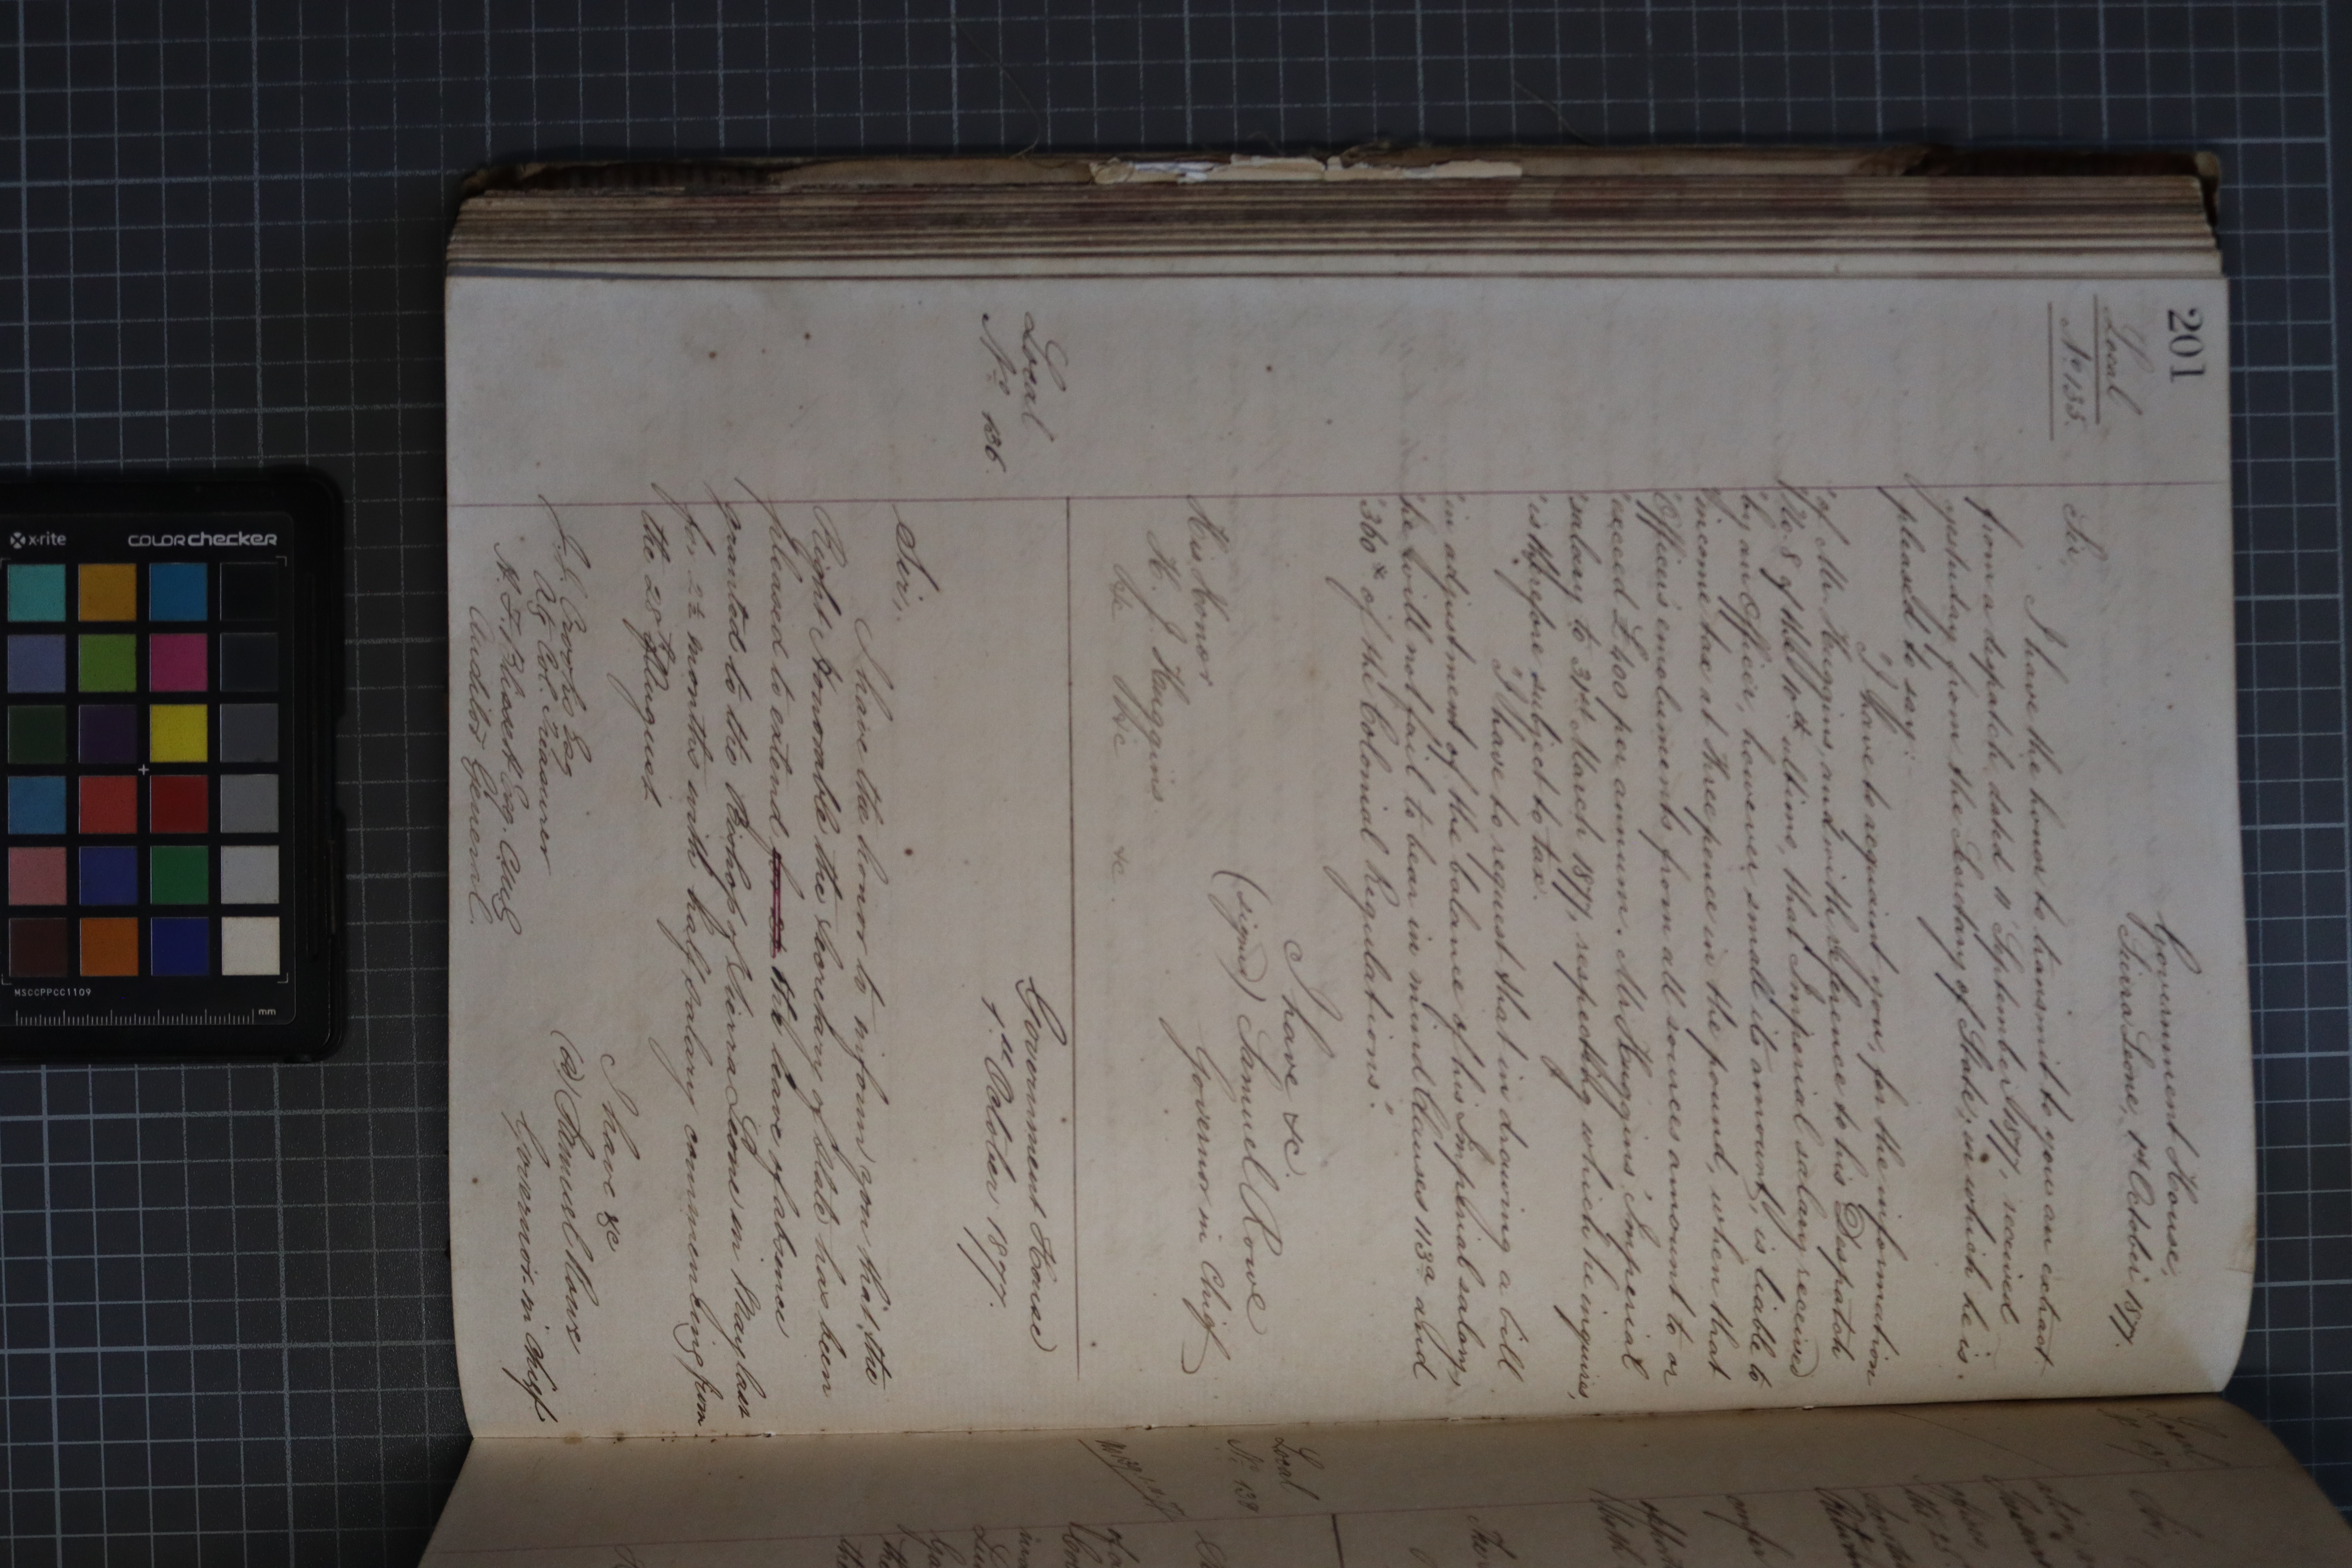 201
Local
No. 135.
Government House,
Sierra Leone, 1st October 1877.
Sir,
I have the honor to transmit to you an extract
from a despatch dated 11 September 1877, received
yesterday from the Secretary of State, in which he is
pleased to say:
"I have to acquaint you, for the information
"of Mr Huggins, and with reference to his Despatch
"No. 8 of the 10th ultimo, that Imperial salary received
"by an Officer, however small its amount, is liable to
"income tax at threepence in the pound, when that
"Officer's emoluments from all sources amount to or
"exceed £400 per annum. Mr Huggins' Imperial
"salary to 31st March 1877, respecting which he inquires,
"is therefore subject to tax.
"I have to request that in drawing a bill
"in adjustment of the balance of his Imperial salary,
"he will not fail to bear in mind Clauses 113a and
"360 of the Colonial Regulations."
I have &c.
(signed) Samuel Rowe
Governor in Chief
His Honor
H. J. Huggins.
&c &c &c.
Local
No. 136.
Government House
1st October 1877.
Sir,
I have the honor to inform you that the
Right Honorable the Secretary of State has been
pleased to extend the leave of absence
granted to the Bishop of Sierra Leone in May last
for 2½ months with half salary commencing from
the 28th August.
I have &c
(sd) Samuel Rowe
Governor in Chief
Esq
Ag Col. Treasurer
Esq. Actg
Auditor General.
Local
No. 137
Sir,
Local
No. 138